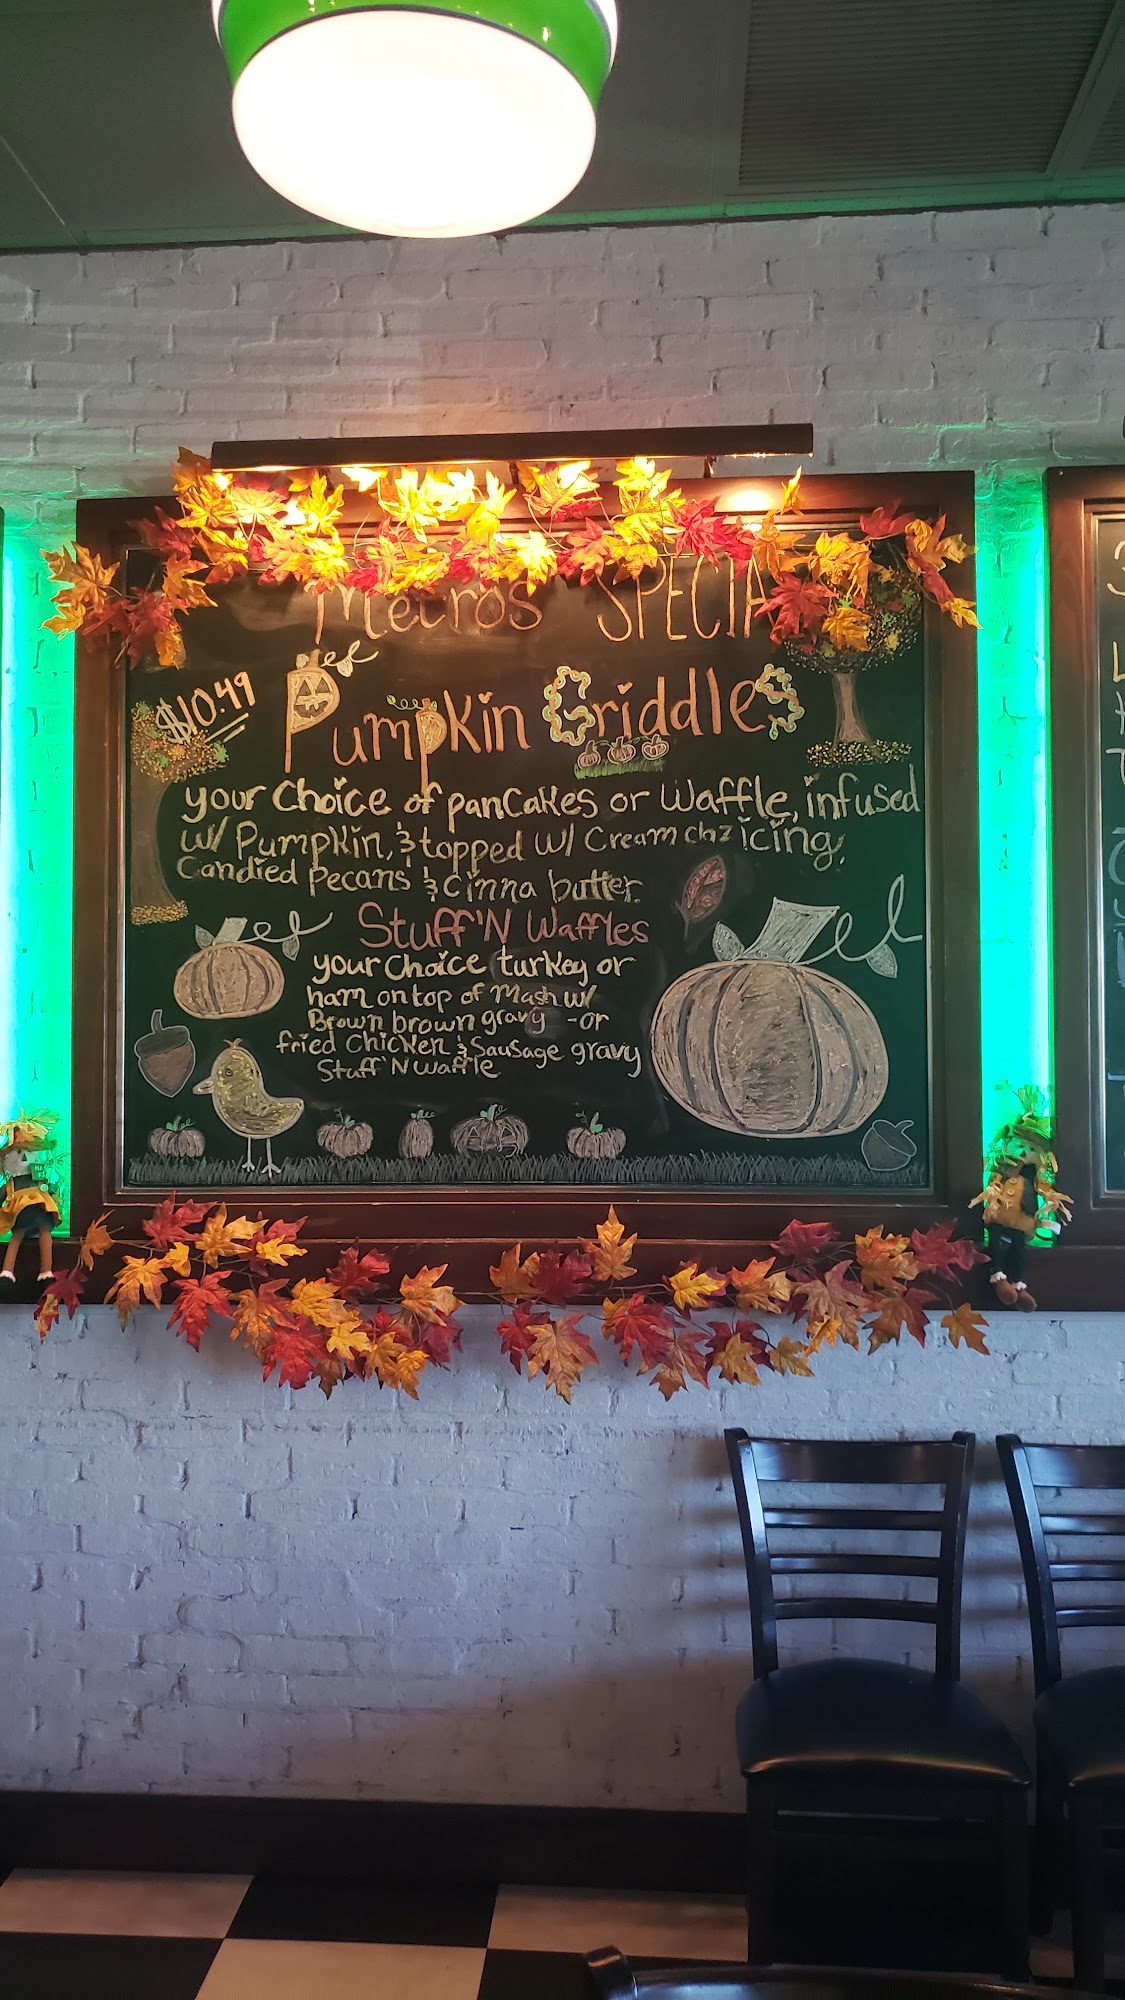 Metros SPECIA
$10.49
Pumpkin Griddles
your choice of pancakes or Waffle, infused
w/ Pumpkin, & topped w/ Cream chz icing,
Candied Pecans & cinna butter.
Stuff'N Waffles
your choice turkey or
ham on top of Mash w/
Brown brown gravy - or
fried chicken & Sausage gravy
Stuff'N Waffle